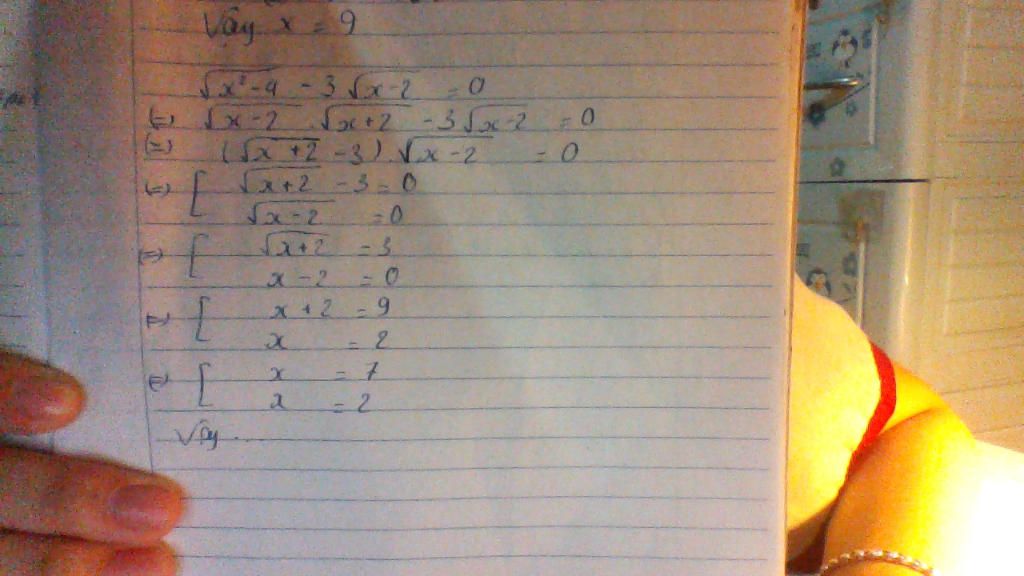 Vậy x = 9
√x²-4 - 3√x-2 = 0
(=) √x-2 . √x+2 - 3√x-2 = 0
(=) (√x+2 - 3) . √x-2 = 0
(=) [ √x+2 - 3 = 0
√x-2 = 0
(=) [ √x+2 = 3
x - 2 = 0
(=) [ x + 2 = 9
x = 2
(=) [ x = 7
x = 2
Vậy ...